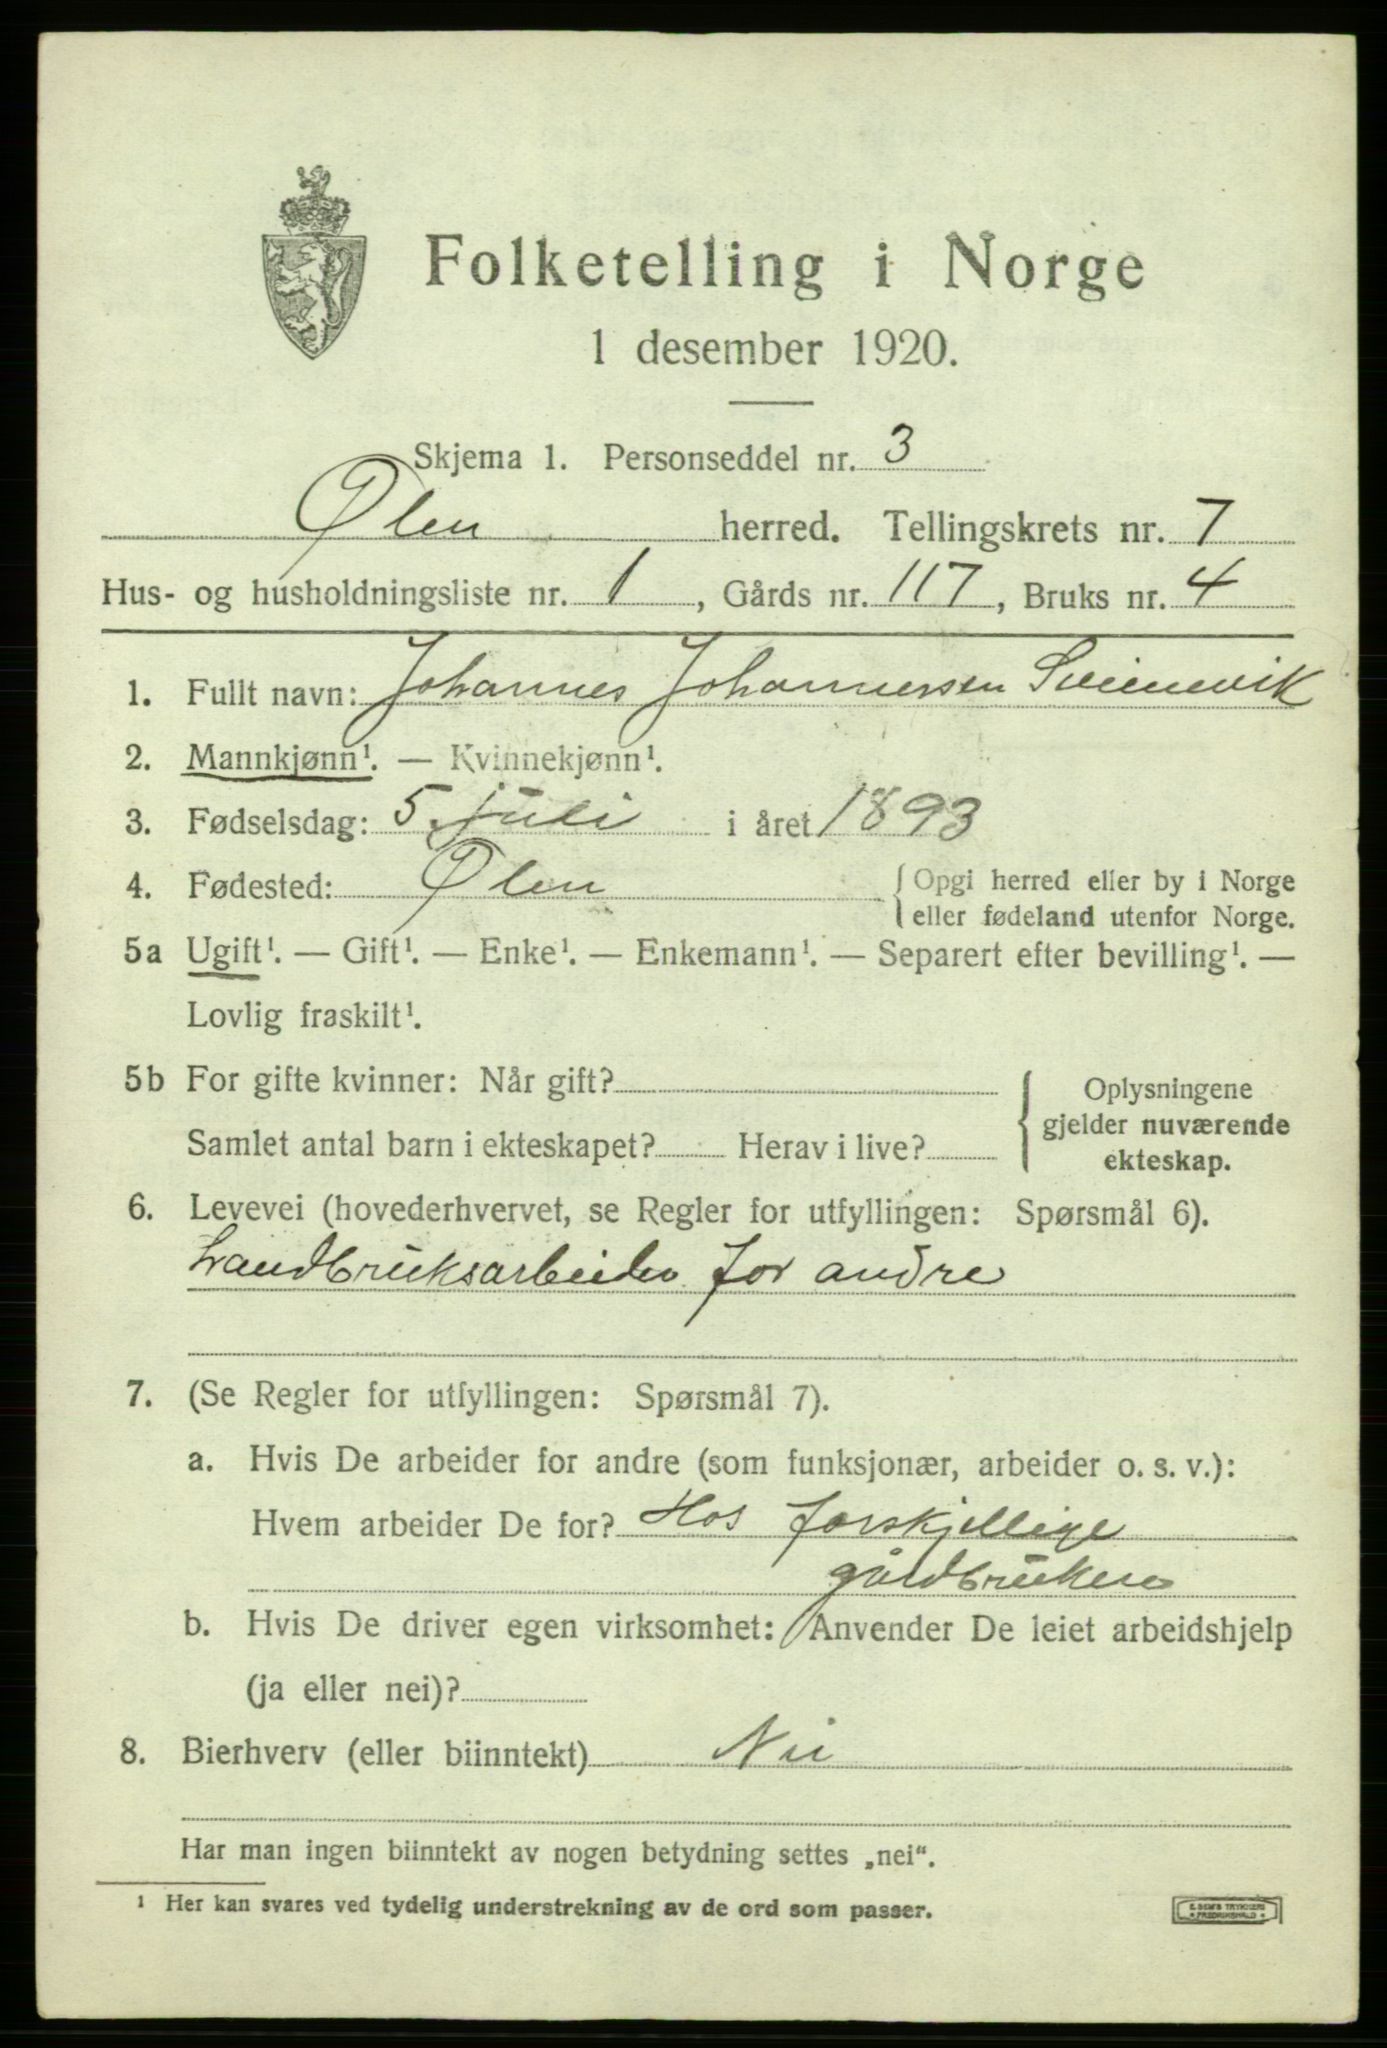 Folketelling i Norge
1 desember 1920.
Skjema 1. Personseddel nr. 3
Ølen herred. Tellingskrets nr. 7
Hus- og husholdningsliste nr. 1, Gårds nr. 117, Bruks nr. 4
1. Fullt navn: Johannes Johannessen
2. Mannkjønn¹. — Kvinnekjønn¹.
3. Fødselsdag: 5 juli i året 1893
4. Fødested: Ølen { Opgi herred eller by i Norge
eller fødeland utenfor Norge.
5a Ugift¹. — Gift¹. — Enke¹. — Enkemann¹. — Separert efter bevilling¹. —
Lovlig fraskilt¹.
5b For gifte kvinner: Når gift? { Oplysningene
gjelder nuværende
Samlet antal barn i ekteskapet? Herav i live?
ekteskap.
6. Levevei (hovederhvervet, se Regler for utfyllingen: Spørsmål 6).
Landbruksarbeider for andre
7. (Se Regler for utfyllingen: Spørsmål 7).
a. Hvis De arbeider for andre (som funksjonær, arbeider o. s. v.):
Hvem arbeider De for? Hos forskjellige
gårdbrukere
b. Hvis De driver egen virksomhet: Anvender De leiet arbeidshjelp
(ja eller nei)?
8. Bierhverv (eller biinntekt) Nei
Har man ingen biinntekt av nogen betydning settes „nei“.
¹ Her kan svares ved tydelig understrekning av de ord som passer.
E. SEMS TRYKKERI
FREDRIKSHALD